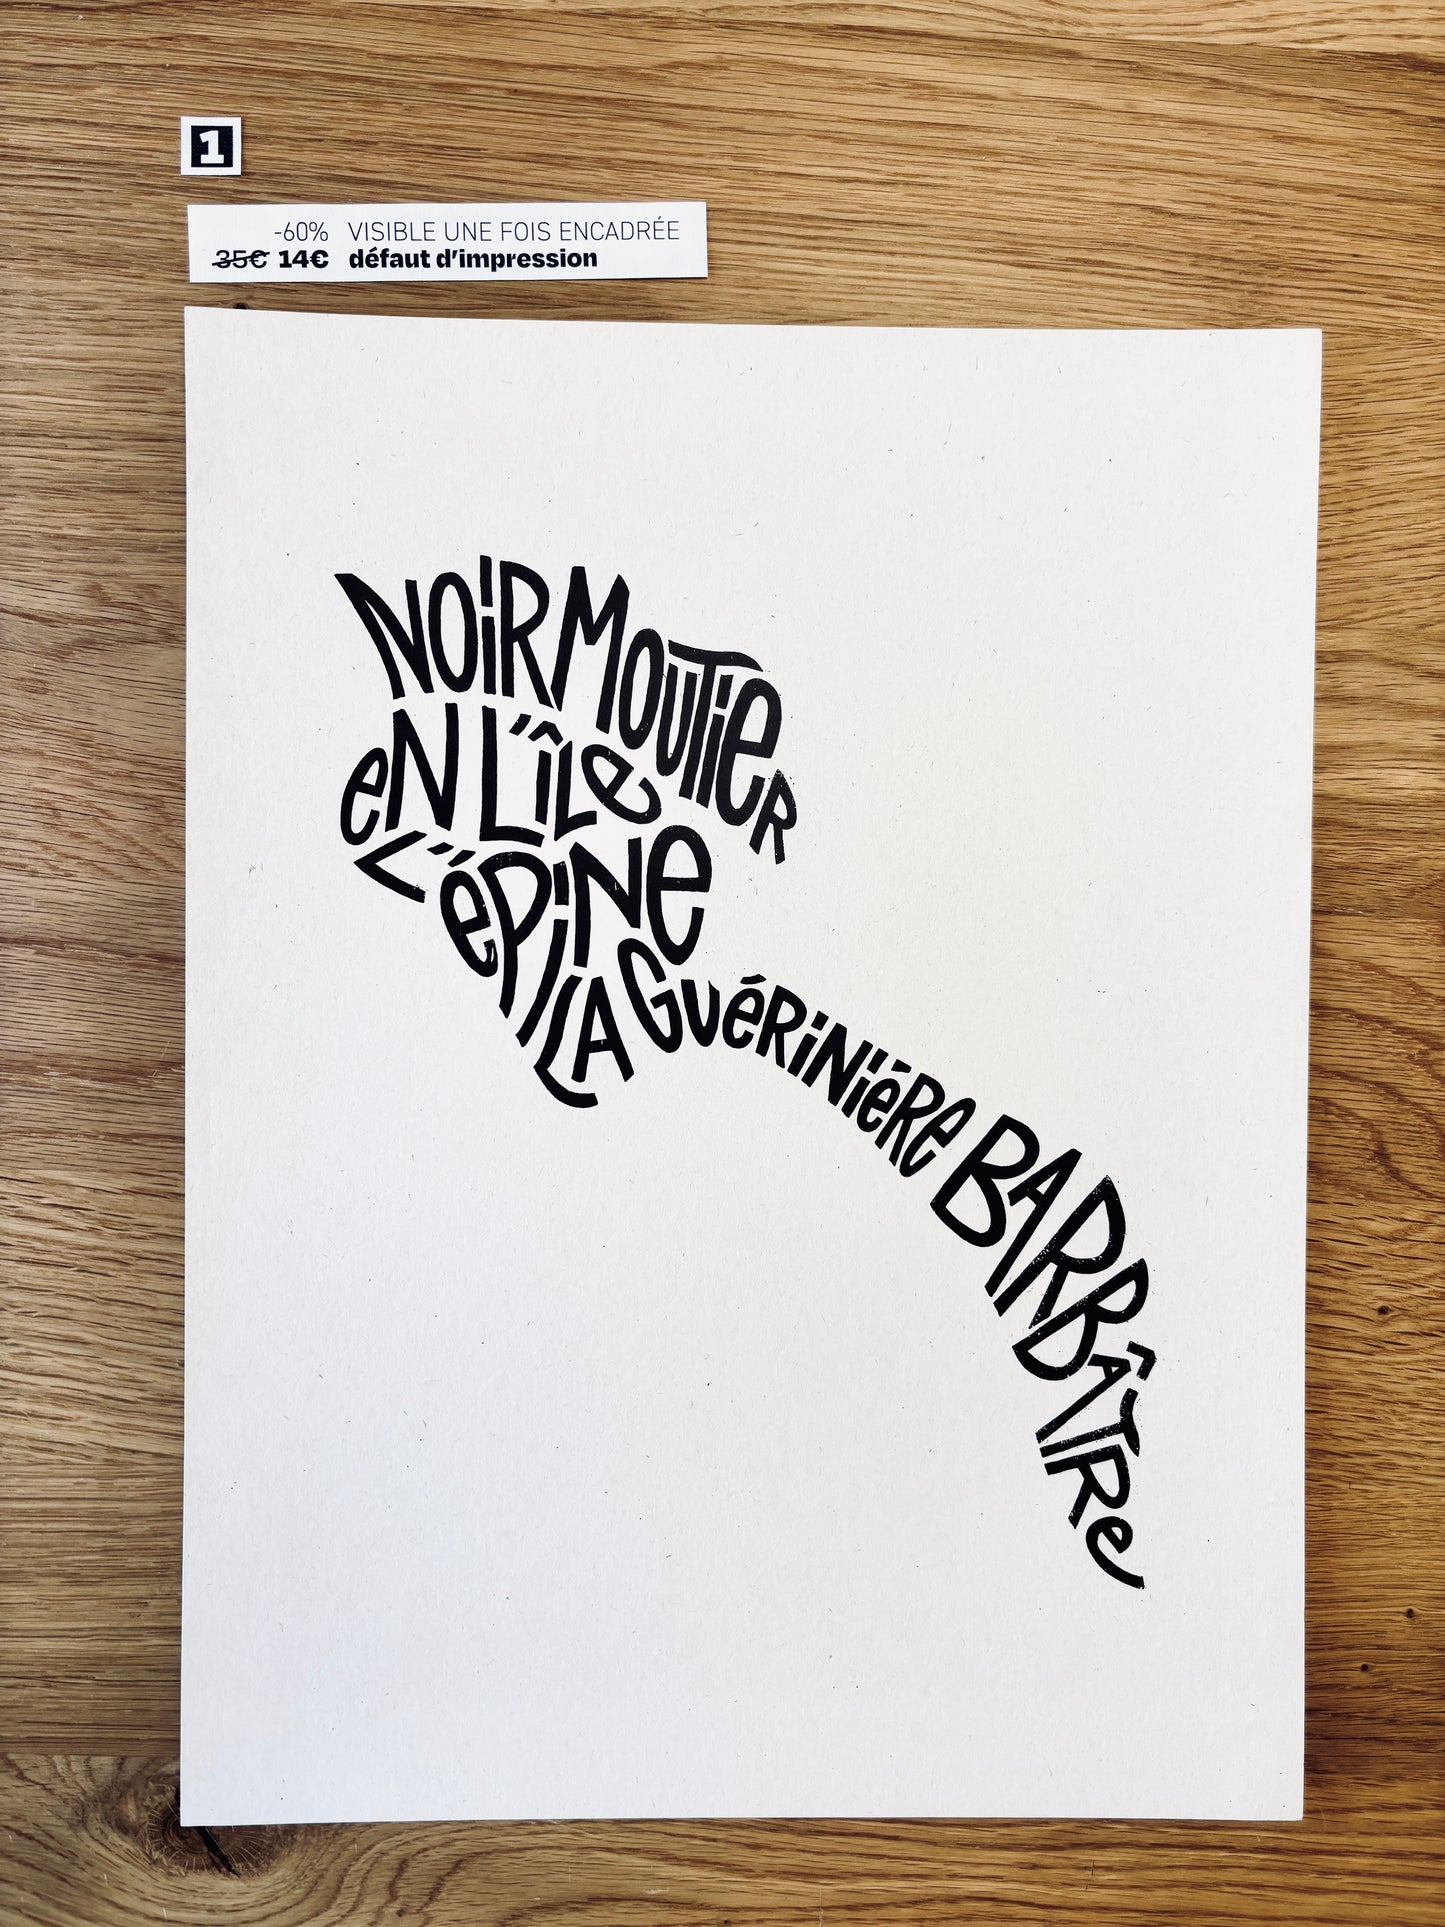 1
-60% VISIBLE UNE FOIS ENCADRÉE
35€ 14€ défaut d'impression
NOIRMOUTIER
EN L'ÎLE
L'ÉPINE
LA GUÉRINIÉRE
BARBÂTRE